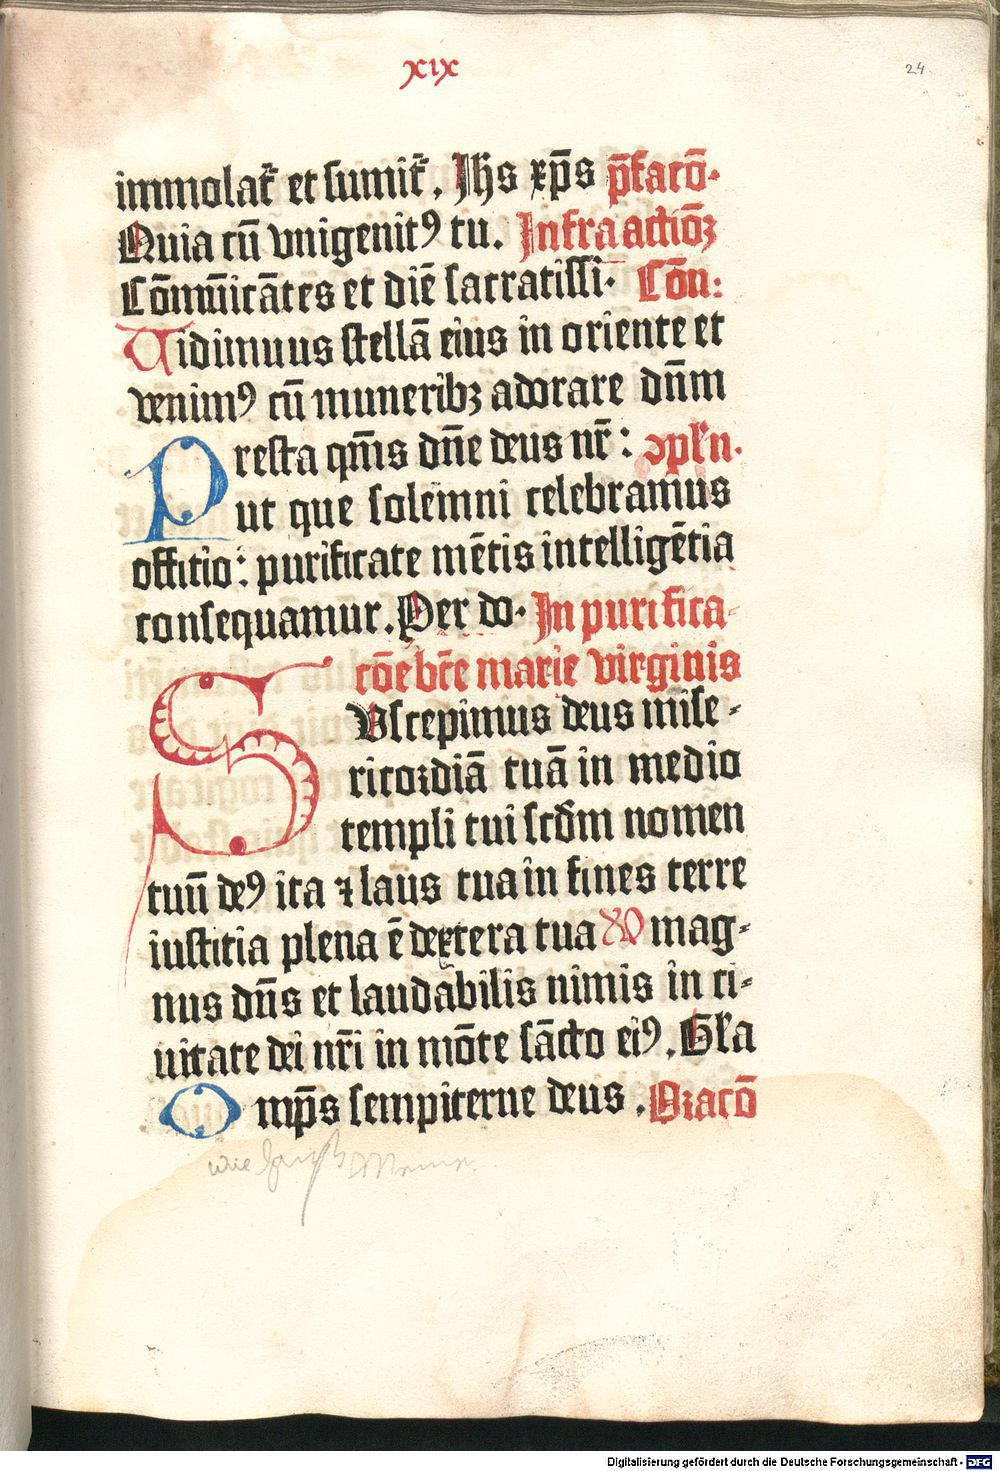 xix
24
immolat᷑ et sumit᷑. Jh̄s xp̄s p̄facō.
Quia cū vnigenitꝰ tu. Infra actiōꝫ
Cōmūicātes et diē sacratissi. Cōn:
Uidimus stellā eius in oriente et
venimꝰ cū muneribꝫ adorare dn̄m
Presta qm̄s dn̄e deus nr̄: ꝯpln̄.
ut que solemni celebramus
offitio: purificate mētis intelligētia
consequamur. Per do. In purifica-
cōe bt̄e marie virginis
SUscepimus deus mīse-
ricordiā tuā in medio
templi tui scd̄m nomen
tuū deꝰ ita ⁊ laus tua in fines terre
iustitia plena ē dextera tua mag-
nus dn̄s et laudabilis nimis in ci-
uitate dei nr̄i in mōte sācto eiꝰ. Gl̄a
Omp̄s sempiterne deus. Oracō
wie
Digitalisierung gefördert durch die Deutsche Forschungsgemeinschaft - DFG